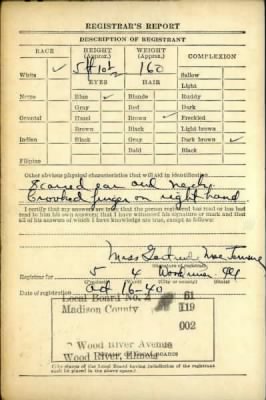 REGISTRAR'S REPORT
DESCRIPTION OF REGISTRANT
RACE HEIGHT (Approx.) WEIGHT (Approx.) COMPLEXION
White ✓ 5 ft 10½ 160 Sallow
EYES HAIR Light
Negro Blue ✓ Blonde Ruddy
Gray Red Dark
Oriental Hazel Brown ✓ Freckled
Brown Black Light brown
Indian Black Gray Dark brown ✓
Bald Black
Filipino
Other obvious physical characteristics that will aid in identification
Scarred ear and neck,
Crooked finger on right hand
I certify that my answers are true; that the person registered has read or has had
read to him his own answers; that I have witnessed his signature or mark and that
all of his answers of which I have knowledge are true, except as follows:
Miss Gertrude Mae
(Signature of registrar)
Registrar for 5 4 Wood River Ill
Date of registration Oct 16-40
Local Board No. 2 61
Madison County 119
002
Wood River Avenue
Wood River, Illinois
(The stamp of the Local Board having jurisdiction of the registrant
shall be placed in the above space.)